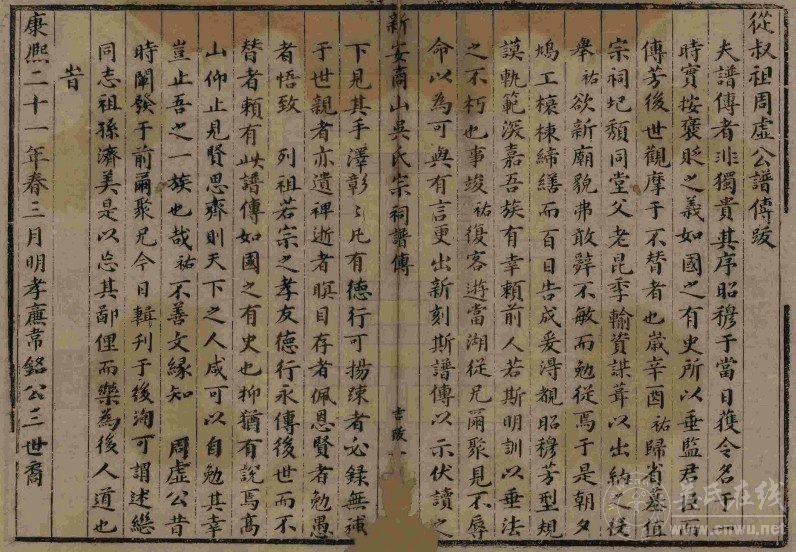 從叔祖周虛公譜傳跋
夫譜傳者非獨貴其序昭穆于當日獲令名于
時實按褒貶之義如國之有史所以垂監君臣
傳芳後世觀摩于不替者也歲辛酉祐歸省墓值
宗祠圮頹同堂父老昆季輸資諆葺以出納之
舉祐欲新廟貌弗敢辭不敏而勉從焉于是朝夕
鳩工榱棟締繕而百日告成爰得覩昭穆芳型規
謨軌範深嘉吾族有幸賴前人若斯明訓以垂法
之不朽也事竣祐復客遊當湖從兄爾聚見不辱
命以為可與有言更出新刻斯譜傳以示伏讀之
新安商山吳氏宗祠譜傳
吉跋 八
下見其手澤彰彰凡有德行可揚疎者必錄無裨
于世親者亦遺裨逝者瞑目存者佩恩賢者勉愚
者悟致 列祖若宗之孝友德行永傳後世而不
替者賴有此譜傳如國之有史也抑猶有說焉高
山仰止見賢思齊則天下之人咸可以自勉其幸
豈止吾之一族也哉祐不善文緣知 周虛公昔
時闡發于前爾聚兄今日輯刊于後洵可謂述繼
同志祖孫濟美是以忘其鄙俚而樂為後人道也
旹
康熙二十一年春三月明孝廉常銘公三世裔
吳氏在线
www.cnwu.net